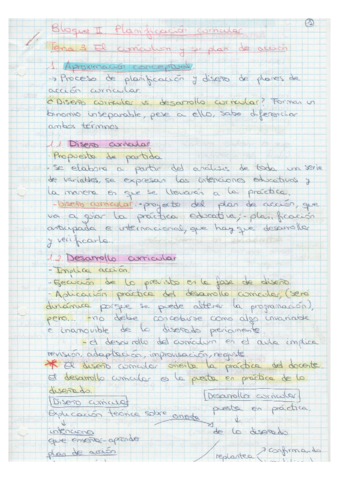 Bloque II Planificación curricular
Tema 3 El curriculum y su plan de acción
1. Aproximación conceptual
→ Proceso de planificación y diseño de planes de
acción curricular.
¿Diseño curricular vs desarrollo curricular? Forman un
binomio inseparable, pese a ello, sabe diferenciar
ambos términos
1.1 Diseño curricular
Propuesta de partida
- Se elabora a partir del análisis de toda una serie
de variables, se expresan las intenciones educativas y
la manera en que se llevarán a la práctica.
- Diseño curricular → proyecto del plan de acción, que
va a guiar la práctica educativa, → planificación
anticipada e intencional, que hay que desarrollar
y verificarla.
1.2 Desarrollo curricular
- Implica acción.
- Ejecución de lo previsto en la fase de diseño
- Aplicación práctica del desarrollo curricular, (será
dinámica porque se puede alterar la programación),
pero - no debe concebirse como algo invariable
e inamovible de lo diseñado previamente
- el desarrollo del curriculum en el aula implica
revisión, adaptación, improvisación, reajuste
* El diseño curricular orienta la práctica del docente
El desarrollo curricular es la puesta en práctica de lo
diseñado
Diseño curricular Desarrollo curricular
Explicación teórica sobre puesta en práctica
de lo diseñado
que enseñar-aprender
plan de acción replantea confirmada